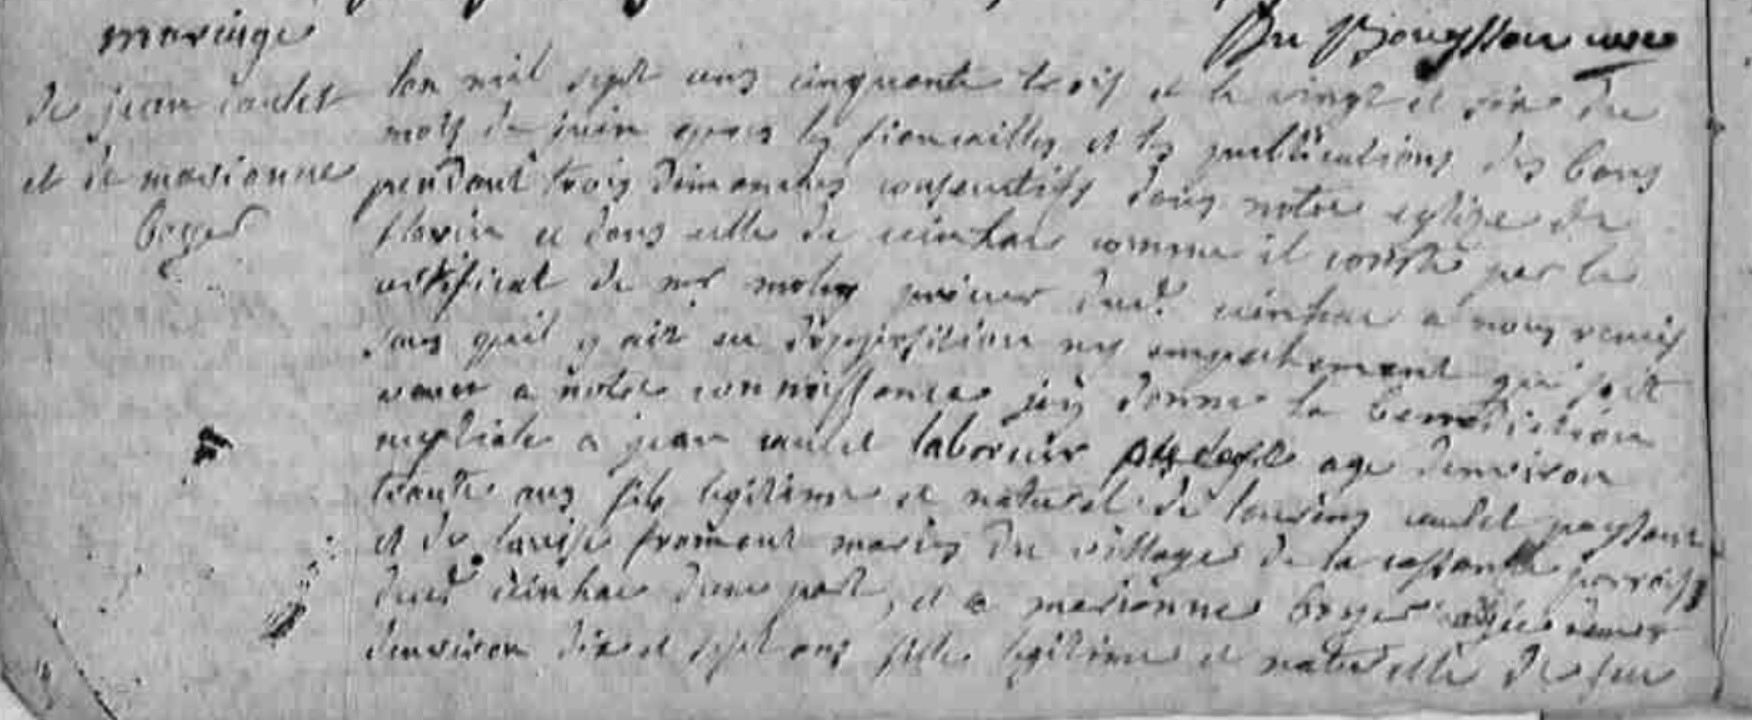 mariage
de jean caulet
et de marionne
boyer
Du Bouyssou curé
lan mil sept cens cinquante trois et le vingt et six du
mois de juin apres les fiancailles et les publications des bans
pendant trois dimanches consecutifs dans notre eglise de
flavin et dans celle de ceinhac comme il conste par le
certificat de mr moly prieur dud. ceinhac a nous remis
sans quil y ait eu dopposition ny empechement qui soit
venu a notre connoissance jay donné la benediction
nuptiale a jean caulet laboureur age denviron
trante ans fils legitime et naturel de caulet paysant
et de louise froment mariés du village de la parroisse
dud ceinhac dune part, et a marionne boyer agée
denviron dix et sept ans fille legitime et naturelle de feu